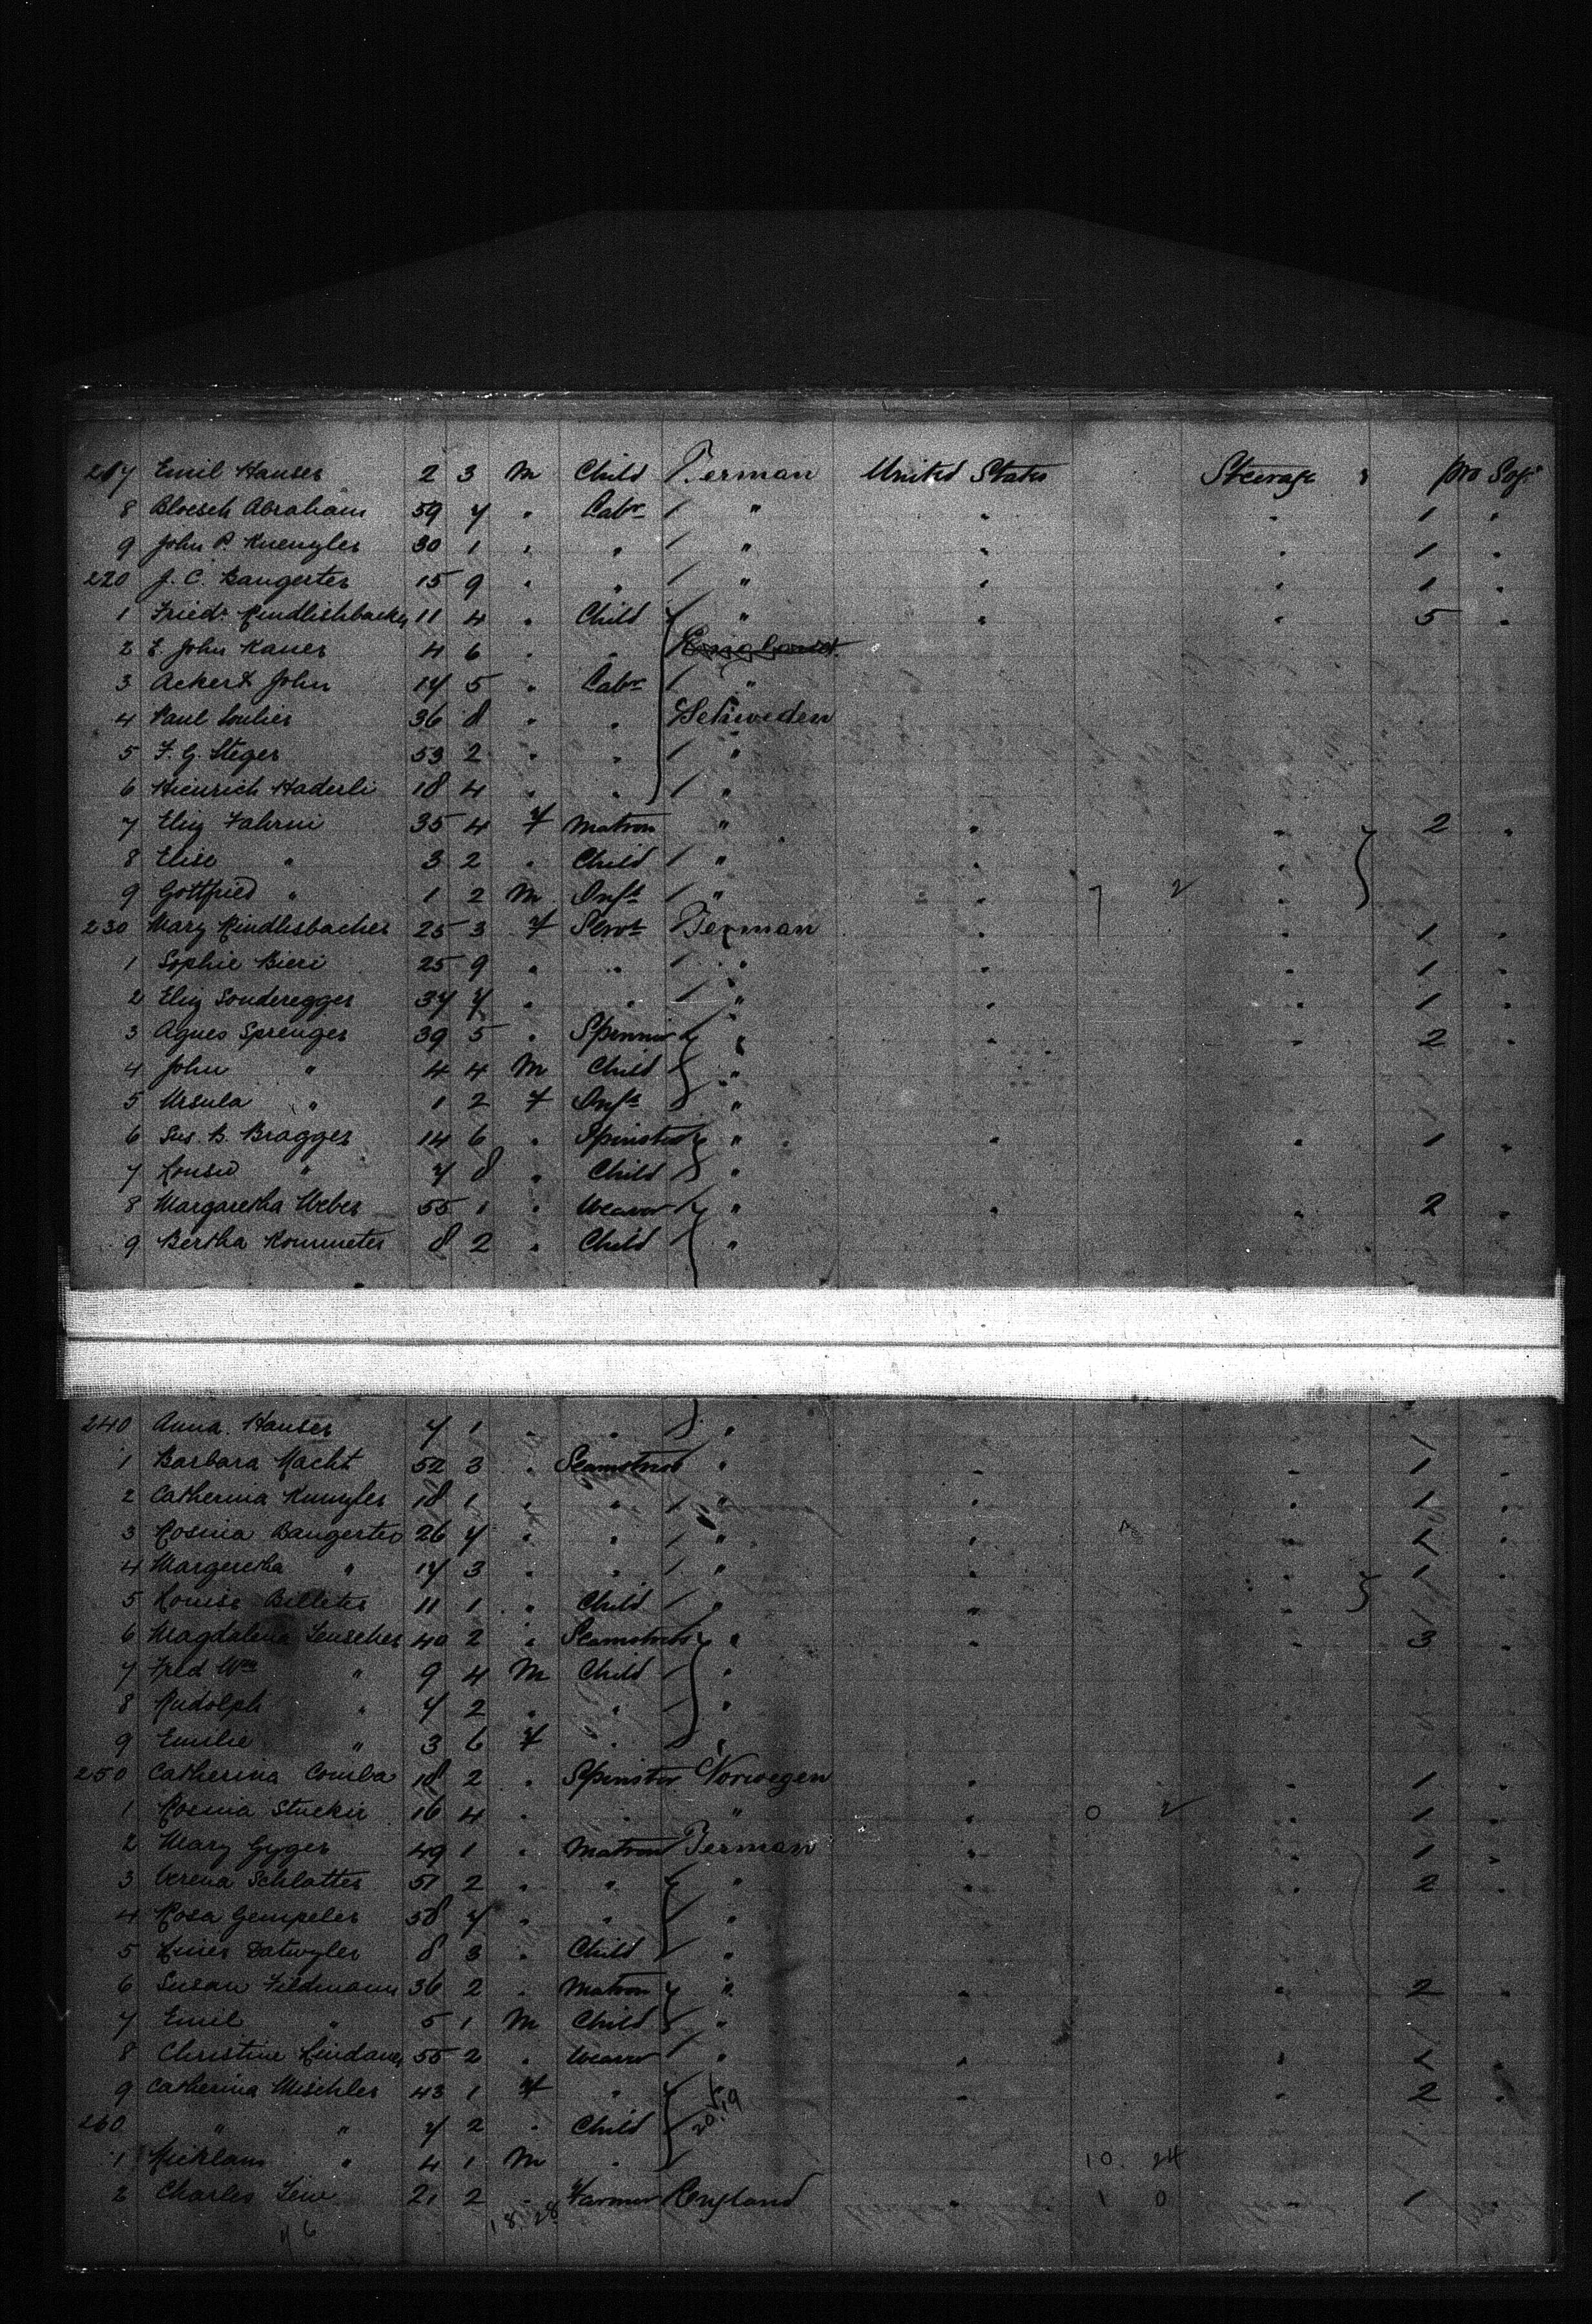 217 Emil Hauser 2 3 M Child German United States Steerage pro Sofi
8 Bloesch Abraham 59 7 " Labr " " " 1 "
9 John P. Kuenzler 30 1 " " " " " 1 "
220 J. C. Bangerter 15 9 " " " " " 1 "
1 Friedr. Rindlishbacher 11 4 " Child " " " 5 "
2 E. John Kaner 4 6 " " England
3 Ackert John 17 5 " Labr "
4 Paul 36 8 " " Schweden
5 F. G. Steger 53 2 " " "
6 Heinrich Haderli 18 4 " " "
7 Eliz Fahrni 35 4 F Matron " " " 2 "
8 Elise " 3 2 " Child " " "
9 Gottfried " 1 2 M Inft " " "
230 Mary Rindlisbacher 25 3 F Servt German " " 1 "
1 Sophie Bieri 25 9 " " " " " 1 "
2 Eliz Sonderegger 37 7 " " " " " 1 "
3 Agnes Sprenger 39 5 " " " " 2 "
4 John " 4 4 M Child "
5 Ursula " 1 2 F Inft "
6 Sus. B. Bragger 14 6 " Spinster " " " 1 "
7 " 7 8 " Child "
8 Margaretha Weber 55 1 " Weaver " " " 2 "
9 Bertha 8 2 " Child "
240 Anna Hauser 7 1 " " "
1 Barbara Macht 52 3 " Seamstress " " " 1 "
2 Catherina Kunzler 18 1 " " " " " 1 "
3 Rosina Bangerter 26 7 " " " " " 1 "
4 Margeretha " 17 3 " " " " " 1 "
5 Louise Billeter 11 1 " Child " " "
6 Magdalena Leuscher 40 2 " Seamstress " " " 3 "
7 Fred Wm " 9 4 M Child "
8 Rudolph " 7 2 " " "
9 Emilie " 3 6 F " "
250 Catherina Comba 18 2 " Spinster Norwegen " " 1 "
1 Rosina Stucki 16 4 " " " " 0 2 " 1 "
2 Mary Gyger 49 1 " Matron German " " 1 "
3 Verena Schlatter 51 2 " " " " " 2 "
4 Rosa Gempeler 58 7 " " "
5 Datwyler 8 3 " Child "
6 Susan Feldmann 36 2 " Matron " " " 2 "
7 Emil " 5 1 M Child "
8 Christine 55 2 " Weaver " " " 1 "
9 Catherina Mischler 43 1 F " " " 2 "
260 " " 7 2 " Child 20.19
1 Nicklaus " 4 1 M " 10. 24
2 Charles 21 2 " Farmer England 1 0 " 1 "
18 28